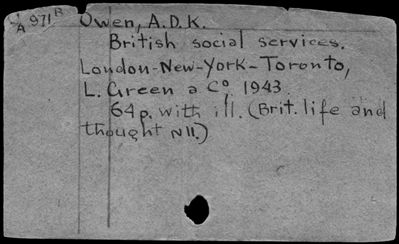 A 971 R Owen, A.D.K.
British social services.
London-New-York-Toronto,
L. Green a Co, 1943.
64p. with ill. (Brit. life and
thought N11.)